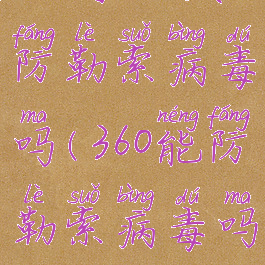 fáng lè suǒ bìng dú
防勒索病毒
ma néng fáng
吗(360能防
lè suǒ bìng dú ma
勒索病毒吗